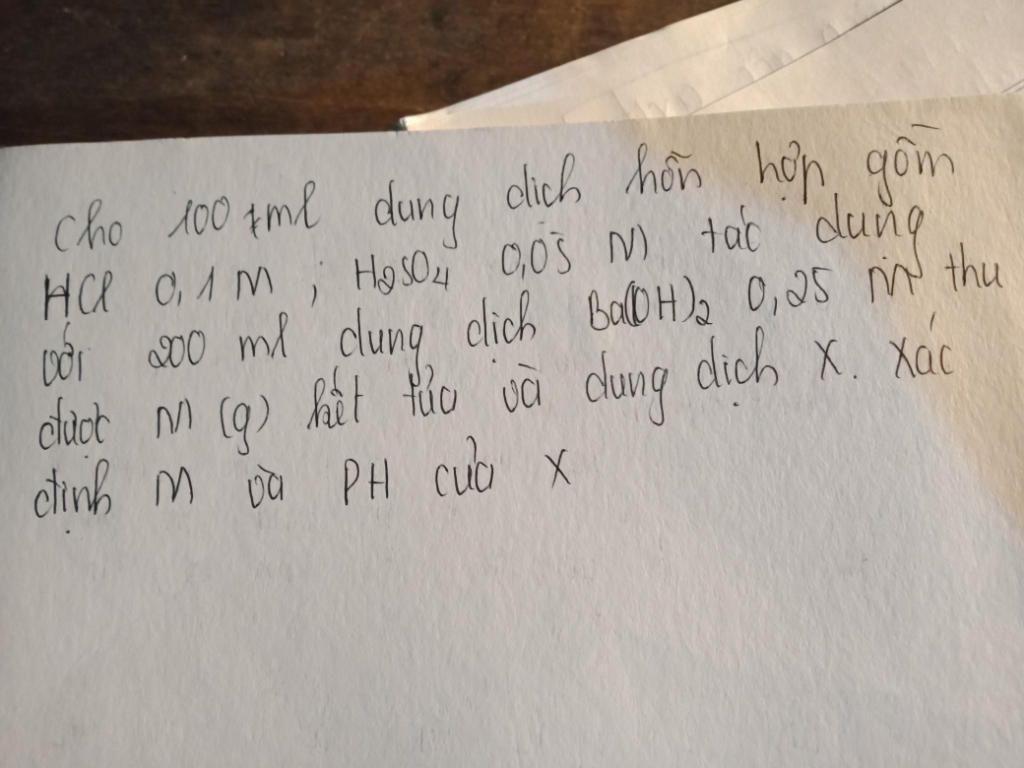 Cho 100 ml dung dịch hỗn hợp gồm
HCl 0,1 M ; H2SO4 0,05 M tác dụng
với 200 ml dung dịch Ba(OH)2 0,25 M thu
được m (g) kết tủa và dung dịch X. Xác
định m và PH của X